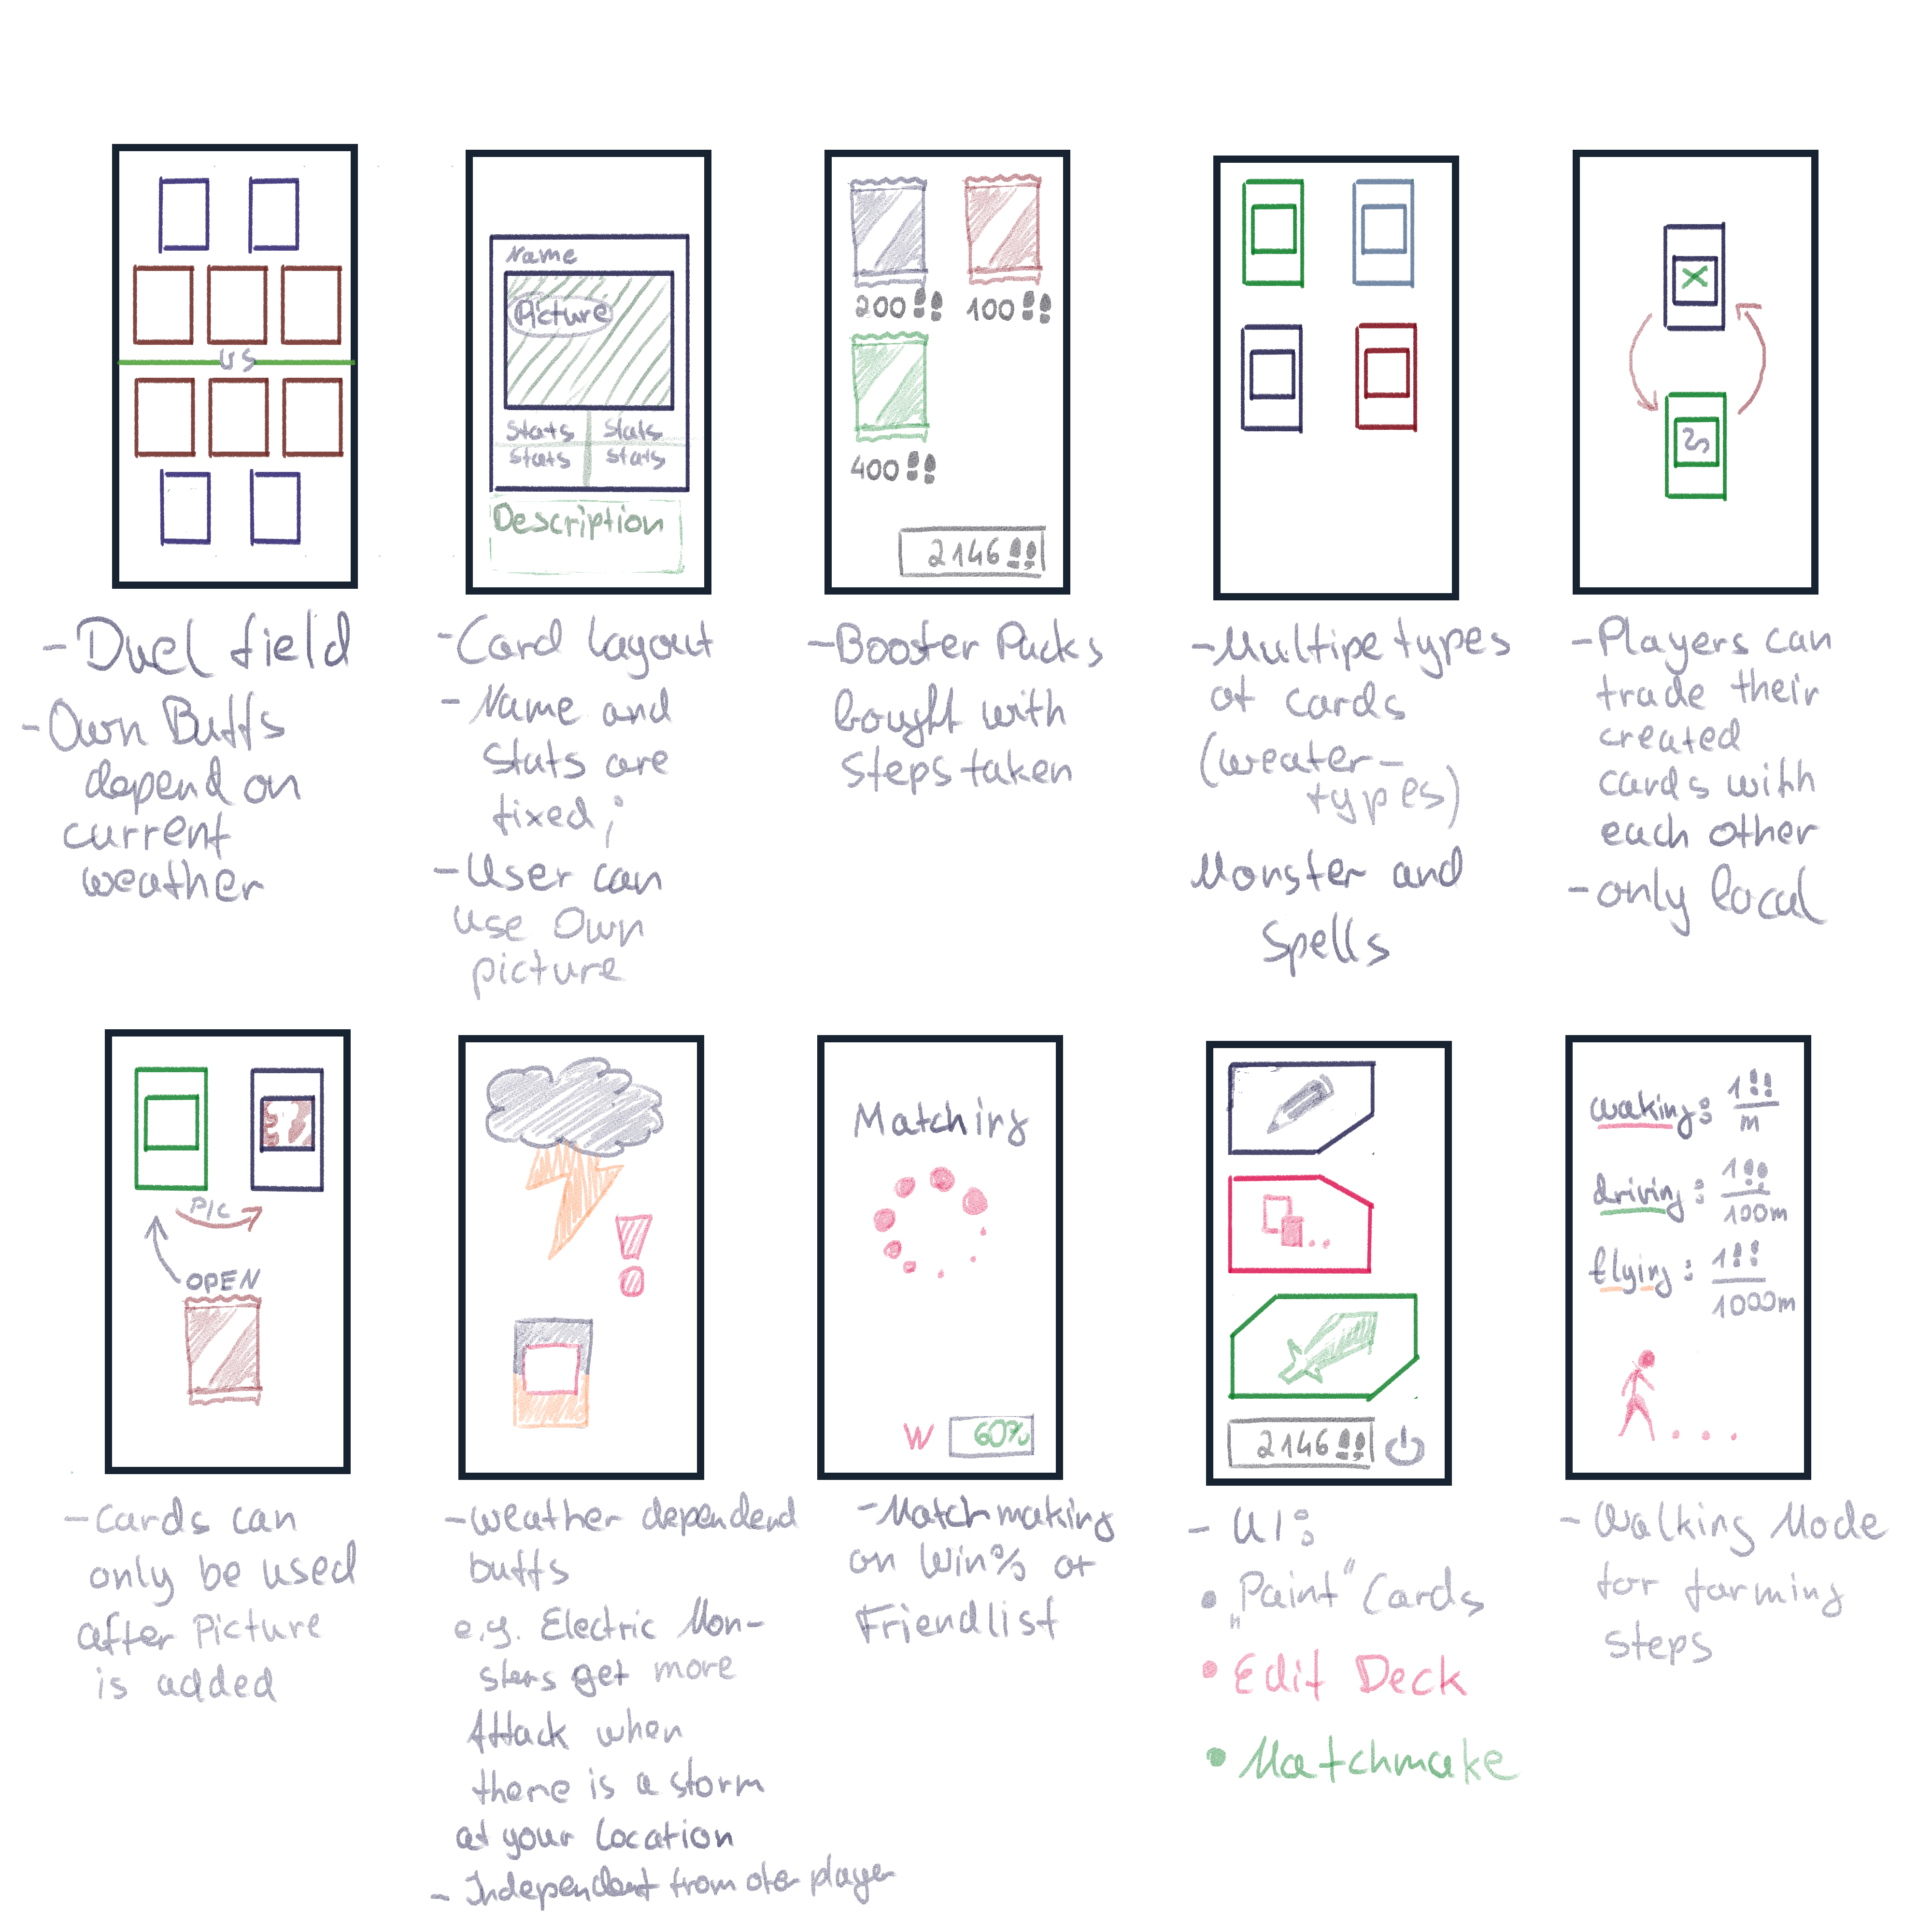 vs
- Duel field
- Own Buffs
depend on
current
weather
Name
Picture
Stats Stats
Stats Stats
Description
- Card layout
- Name and
Stats are
fixed;
- User can
use Own
picture
200 100
400
2146
- Booster Packs
bought with
steps taken
- Multipe types
of cards
(weater-
types)
Monster and
Spells
- Players can
trade their
created
cards with
each other
- only local
PIC
OPEN
- Cards can
only be used
after Picture
is added
- Weather dependend
buffs
e.g. Electric Mon-
sters get more
Attack when
there is a storm
at your location
- Independent from oter player
Matching
W 60%
- Matchmaking
on Win% or
Friendlist
2146
- UI:
• „Paint" Cards
• Edit Deck
• Matchmake
waking: 1
m
driving: 1
100m
flying: 1
1000m
- Walking Mode
for farming
steps